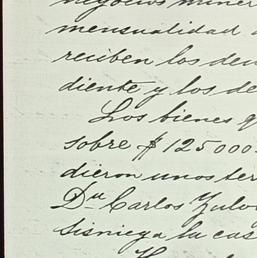 negocios miner
mensualidad
reciben los dem
diente y los de
Los bienes q
sobre $125000.
dieron unos ter
Dn Carlos Zulo
Sisniega la cas